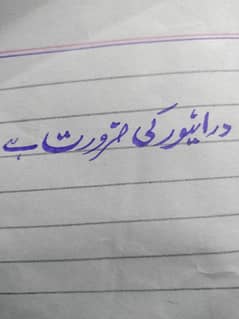 درائیور کی ضرورت ہے